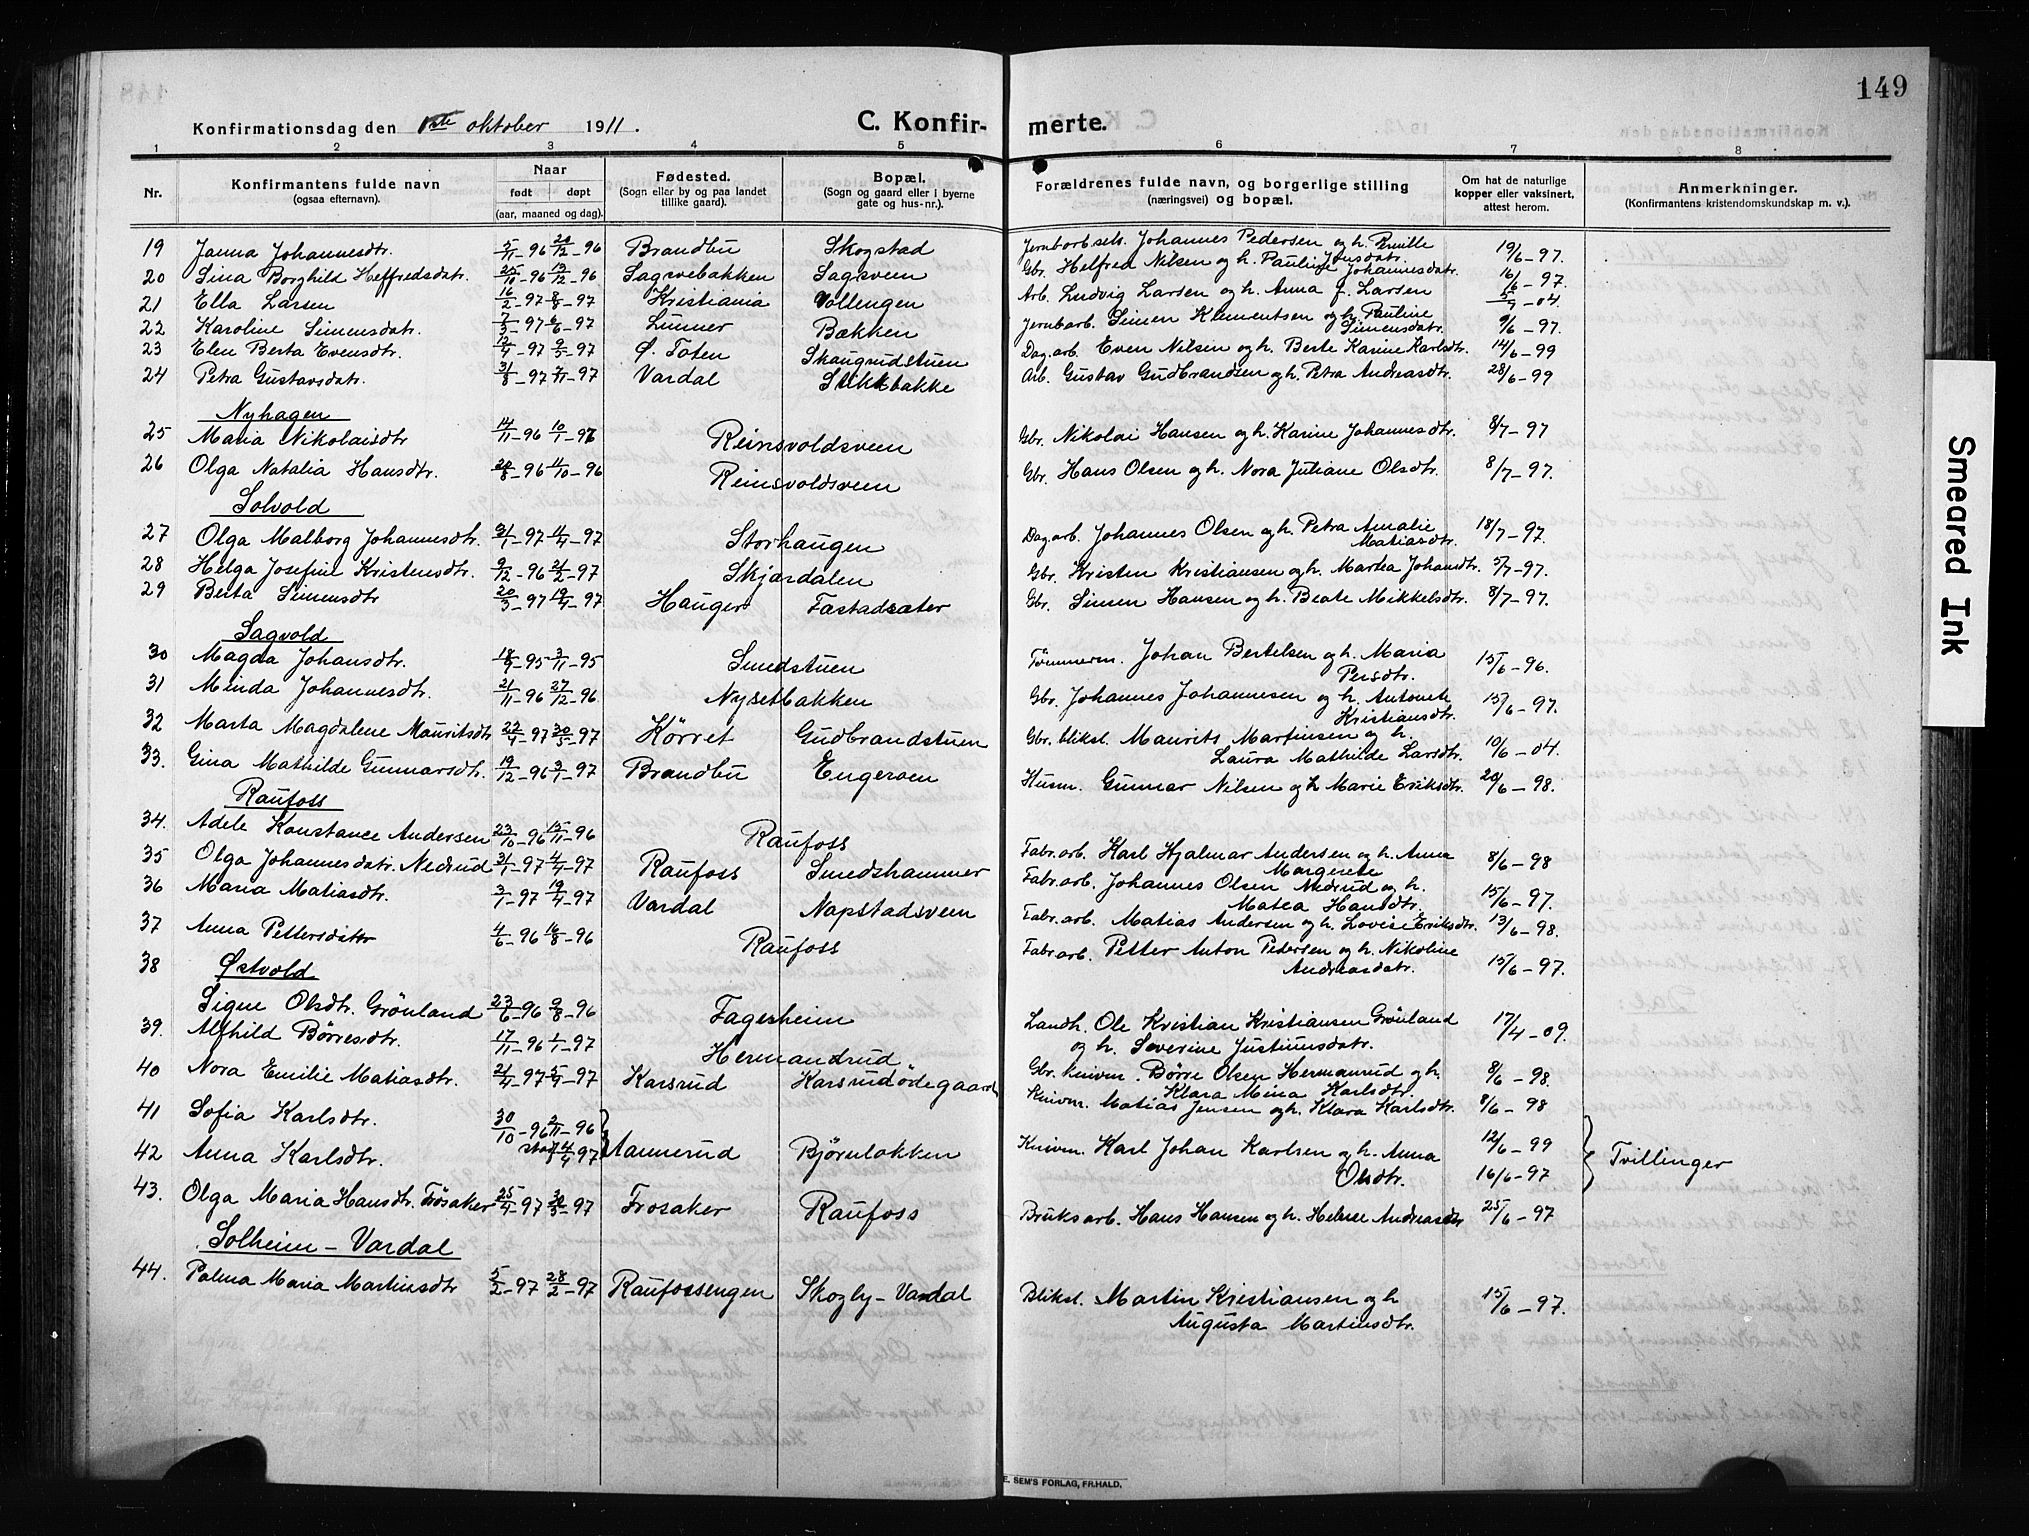 149
Konfirmationsdag den 1ste oktober 1911.
C. Konfirmerte.
1 2 3 4 5 6 7 8
Nr.
Konfirmantens fulde navn
(ogsaa efternavn).
Naar
født døpt
(aar, maaned og dag).
Fødested.
(Sogn eller by og paa landet
tillike gaard).
Bopæl.
(Sogn og gaard eller i byerne
gate og hus-nr.).
Forældrenes fulde navn, og borgerlige stilling
(næringsvei) og bopæl.
Om hat de naturlige
kopper eller vaksinert,
attest herom.
Anmerkninger.
(Konfirmantens kristendomskundskap m. v.).
19 Janna Johannesdtr. 5/11-96 20/12-96 Brandbu Skogstad Jernbarb.selv. Johannes Pedersen og h. Pernille Jonsdatr. 19/6-97.
20 Lina Borghild Helfredsdatr. 25/10-96 13/12-96 Sagsvebakken Sagsveen Gbr. Helfred Nilsen og h. Pauline Johannesdatr. 16/6-97.
21 Ella Larsen 16/2-97 8/8-97 Kristiania Vollengen Arb. Ludvig Larsen og h. Anna J. Larsen 5/7-04.
22 Karoline Simensdatr. 7/3-97 6/6-97 Lunner Bækken Jernbarb. Simen Klementsen og h. Pauline Simensdatr. 9/6-97.
23 Elen Berta Evensdtr. 12/4-97 9/5-97 Ø. Toten Skaugrudstuen Dag.arb. Even Nilsen og h. Berte Karine Karlsdtr. 14/6-99
24 Petra Gustavsdatr. 31/8-97 7/11-97 Vardal Slikkbakke Arb. Gustav Gudbrandsen og h. Petra Andreasdtr. 28/6-99
Nyhagen
25 Maria Nikolaisdtr 14/11-96 10/1-97 Reinsvoldsveen Gbr. Nikolai Hansen og h. Karine Johannesdtr. 8/7-97
26 Olga Natalia Hansdtr. 20/8-96 11/10-96 Reinsvoldsveen Gbr. Hans Olsen og h. Nora Juliane Olsdtr. 8/7-97.
Solvold
27 Olga Malborg Johannesdtr. 31/1-97 11/4-97 Storhaugen Dag.arb. Johannes Olsen og h. Petra Amalie Matiasdtr. 18/7-97.
28 Helga Josefine Kristensdtr. 9/12-96 21/2-97 Skjærdalen Gbr. Kristen Kristiansen og h. Martea Johansdtr. 5/7-97.
29 Berta Simensdtr 20/3-97 19/4-97 Hauger Fastadsæter Gbr. Simen Hansen og h. Beate Mikkelsdtr. 8/7-97.
Sagvold
30 Magda Johansdtr. 18/9-95 3/11-95 Smedstuen Tømmerm. Johan Bertelsen og h. Maria Persdtr. 15/6-96.
31 Minda Johannesdtr. 21/11-96 27/12-96 Nysetbakken Gbr. Johannes Johannesen og h. Antonete Kristiansdtr. 15/6-97.
32 Marta Magdalene Mauritsdtr 22/4-97 30/5-97 Körret Gudbrandstuen Gbr. bliksl. Maurits Martinsen og h. Laura Mathilde Larsdtr. 10/6-04.
33. Gina Mathilde Gunnarsdtr. 19/12-96 3/1-97 Brandbu Engerven Husm. Gunnar Nilsen og h Marie Eriksdtr. 20/6-98.
Raufoss
34. Adele Konstance Andersen 23/10-96 15/11-96 Raufoss Fabr.arb. Karl Hjalmar Andersen og h. Anna Margrete 8/6-98
35 Olga Johannesdatr. Nedrud 31/1-97 4/4-97 Raufoss Smedshammer Fabr.arb. Johannes Olsen Nedrud og h. Matea Hansdtr. 15/6-97.
36 Maria Matiasdtr. 3/1-97 19/4-97 Vardal Napstadsveen Fabr.arb. Matias Andersen og h. Lovise Eriksdtr. 13/6-98.
37 Anna Pettersdatter 4/6-96 16/8-96 Raufoss Fabr.arb. Petter Anton Pedersen og h. Nikoline Andreasdatr. 15/6-97.
Østvold
38 Signe Olsdtr. Grönland 23/6-96 9/8-96 Fagerheim Landh. Ole Kristian Kristiansen Grönland og h. Severine Justinusdatr. 17/4-09.
39. Alfhild Børresdtr. 17/11-96 1/1-97 Hermandrud Gbr. knivm. Børre Olsen Hermanrud og h. Klara Mina Karlsdtr. 8/6-98.
40 Nora Emilie Matiasdtr. 21/4-97 5/7-97 Karsrud Karsrudødegaard Knivm. Matias Jensen og h. Klara Karlsdtr. 8/6-98
41 Sofia Karlsdtr. 30/10-96 2/11-96
42 Anna Karlsdtr. stad 4/4 97 Aannerud Björnlokken Knivm. Karl Johan Karlsen og h. Anna Olsdtr. 12/6-99 16/6-97 Tvillinger
43. Olga Maria Hansdtr. Frösaker 25/4-97 30/5-97 Frosaker Raufoss Bruksarb. Hans Hansen og h. Helene Andreasdtr 25/6-97
Solheim - Vardal
44. Palma Maria Martinsdtr 5/2-97 28/2-97 Raufossengen Skogly - Vardal Bliksl. Martin Kristiansen og h Augusta Martinsdtr. 15/6-97.
E. SEM'S FORLAG, FR.HALD.
Smeared Ink